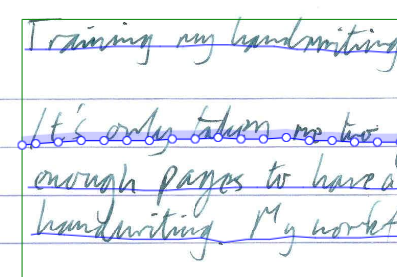 Training my handwriting
It's only taken me two
enough pages to have a
handwriting. My